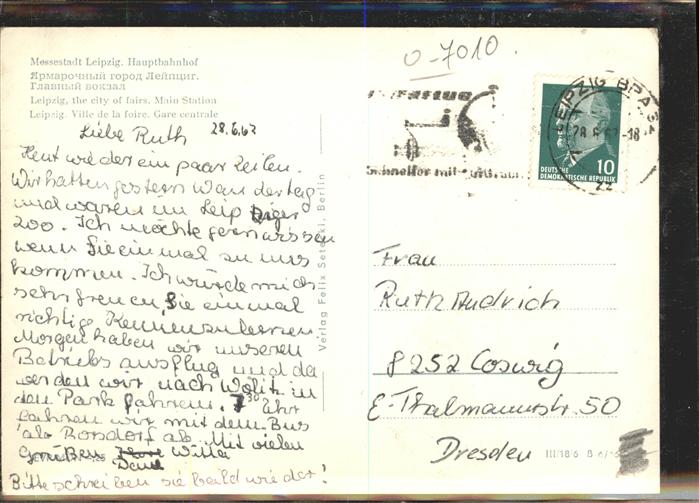 Messestadt Leipzig. Hauptbahnhof
Ярмарочный город Лейпциг.
Главный вокзал
Leipzig, the city of fairs. Main Station
Leipzig. Ville de la foire. Gare centrale
Liebe Ruth 28.6.67
Heut wieder ein paar Zeilen.
Wir hatten gestern Wandertag
und waren im Leipziger
Zoo. Ich möchte gern wissen
wenn Sie einmal zu uns
kommen. Ich würde mich
sehr freuen, Sie einmal
richtig Kennenzulernen
Morgen haben wir unseren
Betriebsausflug und da
werden wir nach Wölitz in
den Park fahren. 7 30 Uhr
fahren wir mit dem Bus
ab Borsdorf ab. Mit vielen
Grüßen Willa
Bitte schreiben sie bald wieder!
Verlag Felix Setecki, Berlin
0-7010.
Schneller mit
LEIPZIG BPA
28.6.67-18
10
DEUTSCHE
DEMOKRATISCHE REPUBLIK
Frau
Ruth Audrich
8252 Coswig
E-Thälmannstr. 50
Dresden
III/18/6